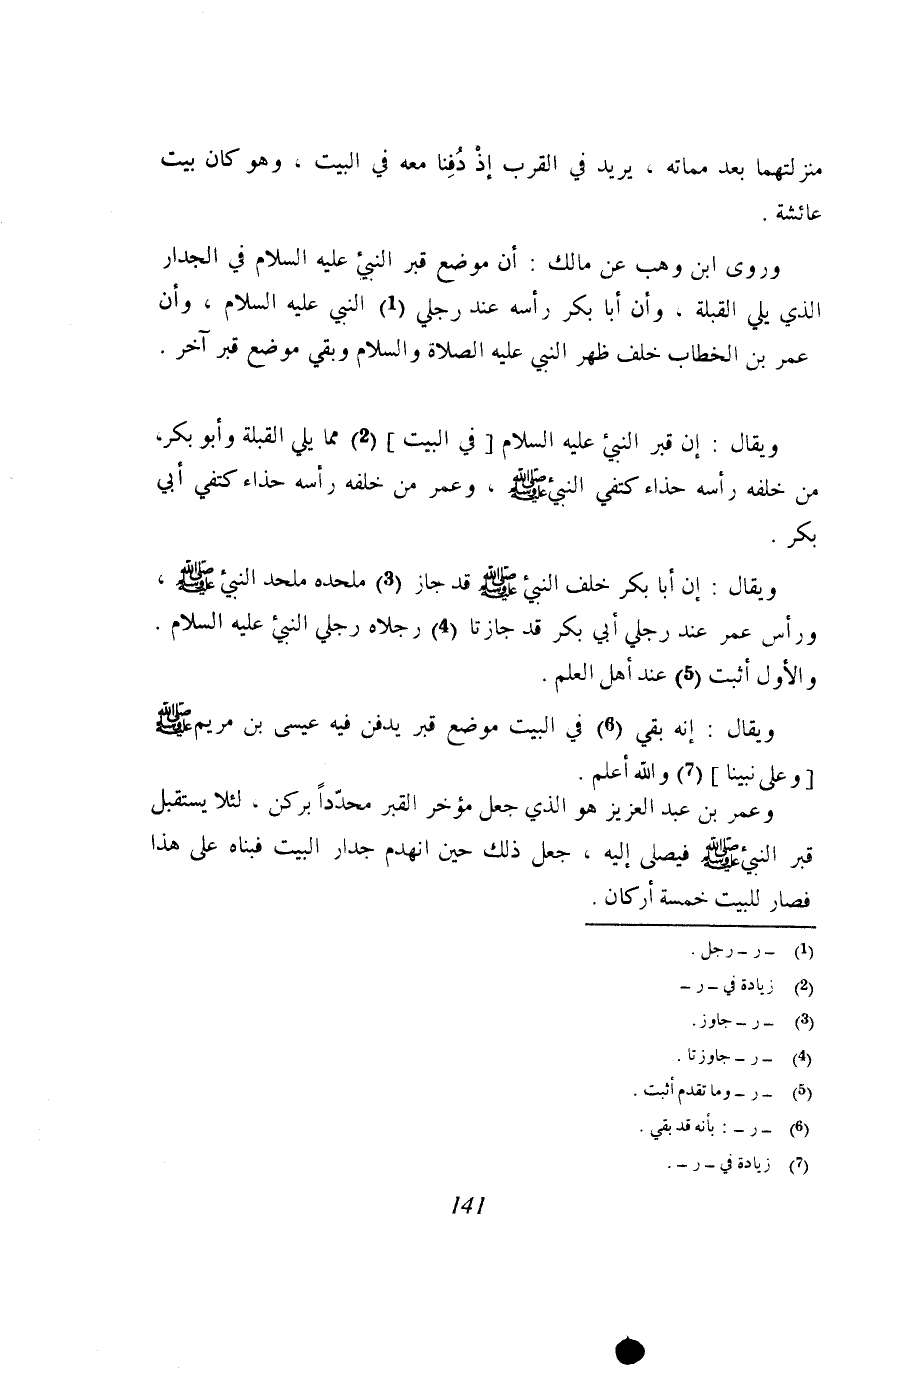 منزلتهما بعد مماته ، يريد في القرب إذْ دُفِنا معه في البيت ، وهو كان بيت
عائشة .
وروى ابن وهب عن مالك : أن موضع قبر النبيّ عليه السلام في الجدار
الذي يلي القبلة ، وأن أبا بكر رأسه عند رجلي (1) النبي عليه السلام ، وأن
عمر بن الخطاب خلف ظهر النبي عليه الصلاة والسلام وبقي موضع قبر آخر .
ويقال : إن قبر النبيّ عليه السلام [ في البيت ] (2) مما يلي القبلة وأبو بكر،
من خلفه رأسه حذاء كتفي النبيّ ﷺ ، وعمر من خلفه رأسه حذاء كتفي أبي
بكر .
ويقال : إن أبا بكر خلف النبيّ ﷺ قد جاز (3) ملحده ملحد النبيّ ﷺ ،
ورأس عمر عند رجلي أبي بكر قد جازتا (4) رجلاه رجلي النبيّ عليه السلام .
والأول أثبت (5) عند أهل العلم .
ويقال : إنه بقي (6) في البيت موضع قبر يدفن فيه عيسى بن مريم ﷺ
[ وعلى نبينا ] (7) والله أعلم .
وعمر بن عبد العزيز هو الذي جعل مؤخر القبر محدّداً بركن ، لئلا يستقبل
قبر النبيّ ﷺ فيصلى إليه ، جعل ذلك حين انهدم جدار البيت فبناه على هذا
فصار للبيت خمسة أركان .
(1) – ر – رجل .
(2) زيادة في – ر –
(3) – ر – جاوز .
(4) – ر – جاوزتا .
(5) – ر – وما تقدم أثبت .
(6) – ر – : بأنه قد بقي .
(7) زيادة في – ر – .
141